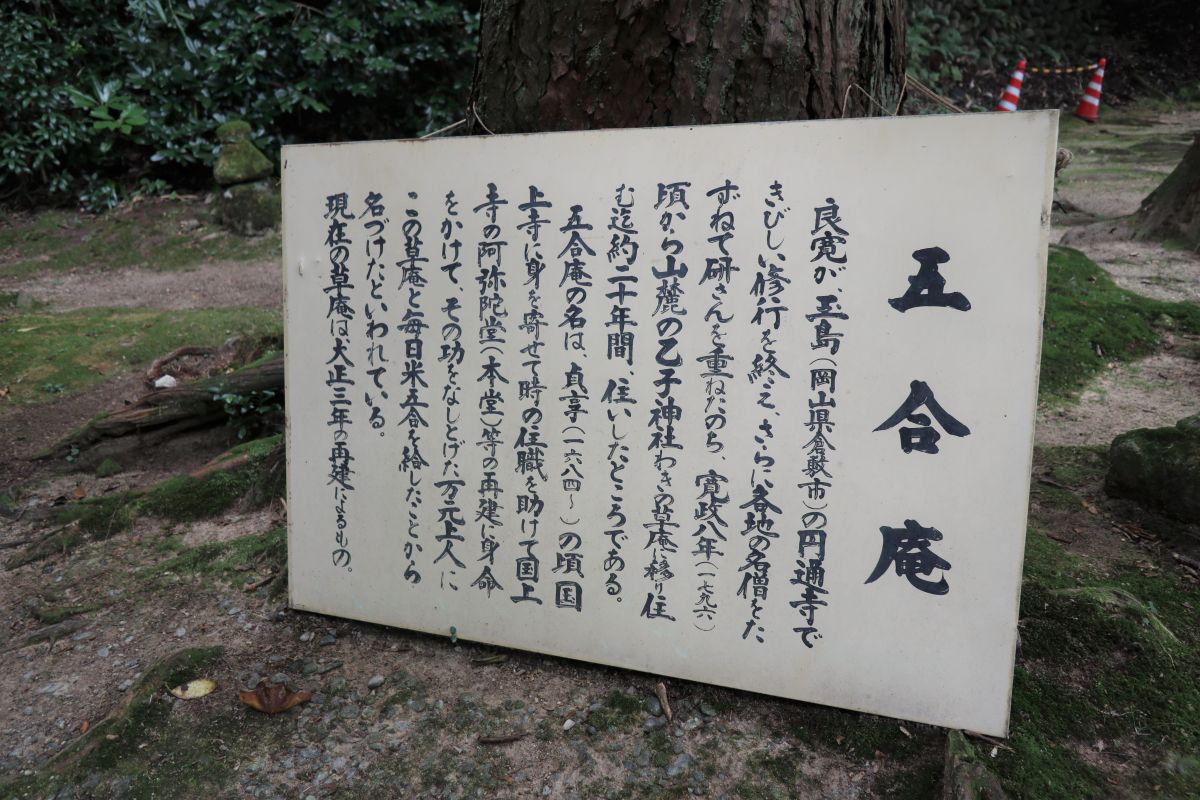 五合庵
良寛が、玉島（岡山県倉敷市）の円通寺で
きびしい修行を終え、さらに各地の名僧をた
ずねて研さんを重ねたのち、寛政八年（一七九六）
頃から山麓の乙子神社わきの草庵に移り住
む迄約二十年間、住いしたところである。
五合庵の名は、貞享（一六八四～）の頃国
上寺に身を寄せて時の住職を助けて国上
寺の阿弥陀堂（本堂）等の再建に身命
をかけて、その功をなしとげた万元上人に
この草庵と毎日米五合を給したことから
名づけたといわれている。
現在の草庵は大正三年の再建によるもの。